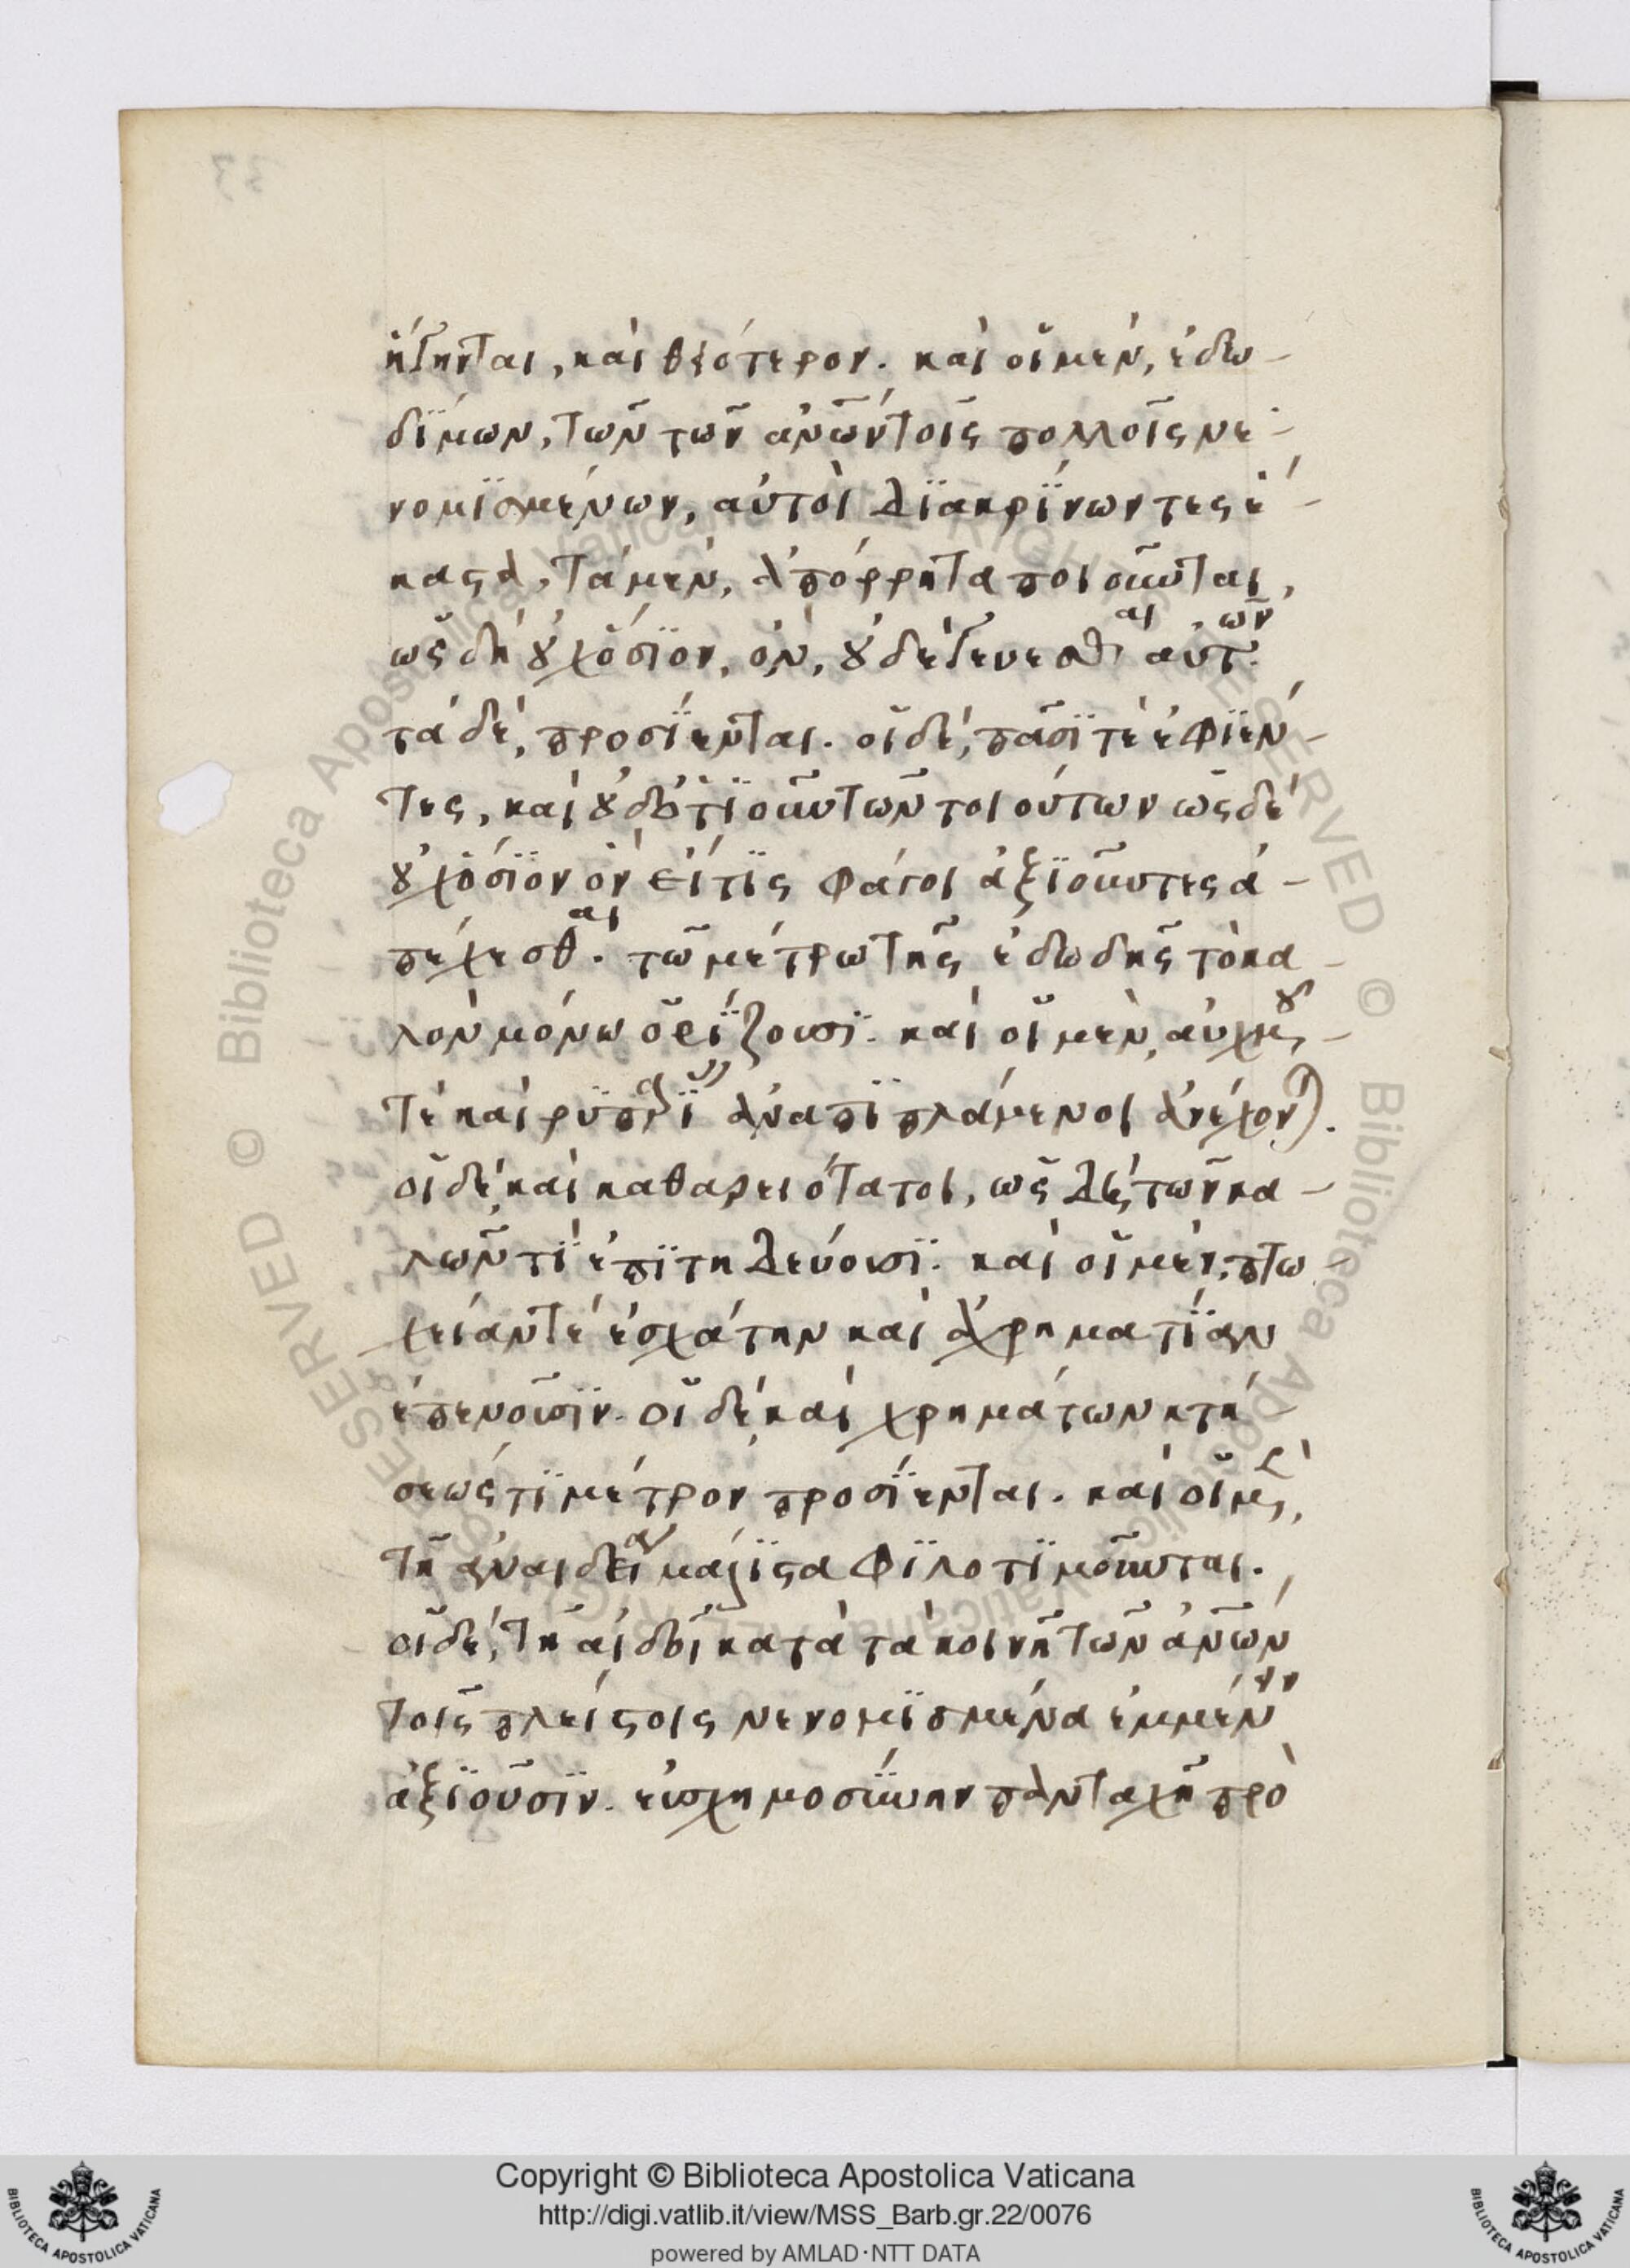 ἥγηνται, καὶ θειότερον. καὶ οἱ μὲν, ἐδω-
δίμων, τῶν τῶν ἀνῶν τοῖς πολλοῖς νε-
νομισμένων, αὐτοὶ διακρίνωντες ἕ-
καστα, τὰ μὲν, ἀπόρρητα ποιοῦνται,
ὡς δὴ οὐχ ὅσιον, ὂν, οὐδὲ γεύεσθαι αὐτῶν.
τὰ δὲ, προσίενται. οἱ δὲ, πᾶσί τε ἐφιέν-
τες, καὶ οὐδὲ τι οὖν τῶν τοιούτων ὡς δὲ
οὐχ ὅσιον ὂν εἴ τις φάγοι ἀξιοῦντες ἀ-
πέχεσθαι. τῶ μέτρω τῆς ἐδωδῆς τὸ κα-
λὸν μόνω ὁρίζουσι. καὶ οἱ μὲν, αὐχμοῦ
τε καὶ ῥύπου ἀναπιπλάμενοι ἀνέχονται.
οἱ δὲ, καὶ καθαρειότατοι, ὡς δὲ τῶν κα-
λῶν τι ἐπιτηδεύουσι. καὶ οἱ μὲν, πτω-
χείαν τὲ ἐσχάτην καὶ ἀχρηματίαν
ἐπενοῦσιν. οἱ δὲ, καὶ χρημάτων κτή-
σεώς τι μέτρον προσίενται. καὶ οἱ μὲν,
τῆ ἀναιδεία μάλιστα φιλοτιμοῦνται.
οἱ δὲ, τῆ αἰδοῖ κατὰ τὰ κοινῆ τῶν ἀνῶν
τοῖς πλείστοις νενομισμένα ἐμμένειν
ἀξιοῦσιν. εὐσχημοσύνην πανταχῆ πρὸ
Copyright © Biblioteca Apostolica Vaticana
http://digi.vatlib.it/view/MSS_Barb.gr.22/0076
powered by AMLAD·NTT DATA